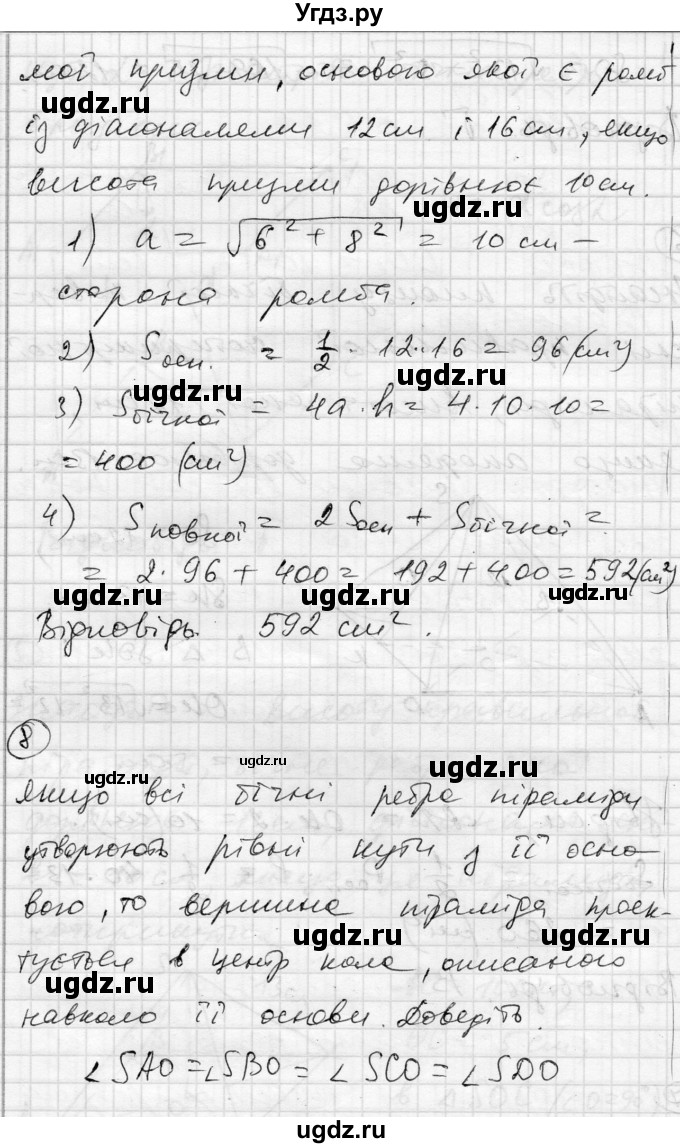 Угдз.ру
мої призми, основою якої є ромб
із діагоналями 12 см і 16 см, якщо
ugdz.ru
висота призми дорівнює 10 см.
ugdz.ru
1) a = √6² + 8² = 10 см –
сторона ромба.
ugdz.ru
2) Sосн. = 1/2 · 12 · 16 = 96 (см²)
ugdz.ru
3) Sбічної = 4a · h = 4 · 10 · 10 =
= 400 (см²)
ugdz.ru
4) Sповної = 2Sосн + Sбічної =
= 2 · 96 + 400 = 192 + 400 = 592 (см²)
ugdz.ru ugdz.ru ugdz.ru
Відповідь. 592 см².
8
ugdz.ru ugdz.ru
якщо всі бічні ребра піраміди
утворюють рівні кути з її осно-
ugdz.ru
вою, то вершина піраміда проек-
ugdz.ru
тується в центр кола, описаного
ugdz.ru
навколо її основи. Доведіть.
ugdz.ru
∠SAO = ∠SBO = ∠SCO = ∠SDO
ugdz.ru